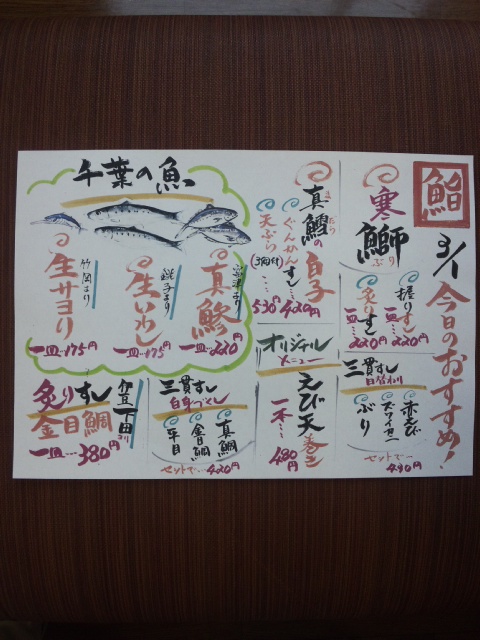 鮨
3/1 今日のおすすめ!
寒鰤
ぶり
握りすし
一皿…220円
炙りすし
一皿…220円
三貫すし
日替わり
赤えび
ズワイガニ
ぶり
セットで…490円
真鱈の白子
ま たら
ぐんかんすし…420円
天ぷら(3個付)…530円
オリジナル
メニュー
えび天巻き
一本…480円
千葉の魚
真鯵
一皿…220円
銚子より
生いわし
一皿…175円
竹岡より
生サヨリ
一皿…175円
三貫すし
白身づくし
真鯛
金目鯛
平目
セットで…420円
伊豆下田より
炙りすし
金目鯛
一皿…380円